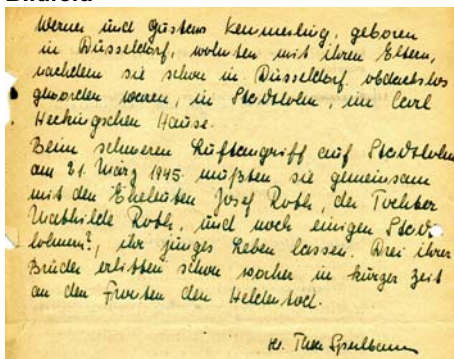 Werner und Gustens Kemmerling, geboren
in Düsseldorf, wohnten mit ihren Eltern,
nachdem sie schon in Düsseldorf obdachlos
geworden waren, in Stadtlohn, im Carl
Heckingschen Hause.
Beim schweren Luftangriff auf Stadtlohn
am 21. März 1945 mußten sie gemeinsam
mit den Eheleuten Josef Roth, der Tochter
Mathilde Roth, und noch einigen Stadt-
lohnern, ihr junges Leben lassen. Drei ihrer
Brüder erlitten schon vorher in kurzer Zeit
an den Fronten den Heldentod.